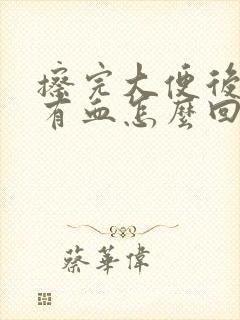 擦完大便後
有血怎麼回
蔡華偉